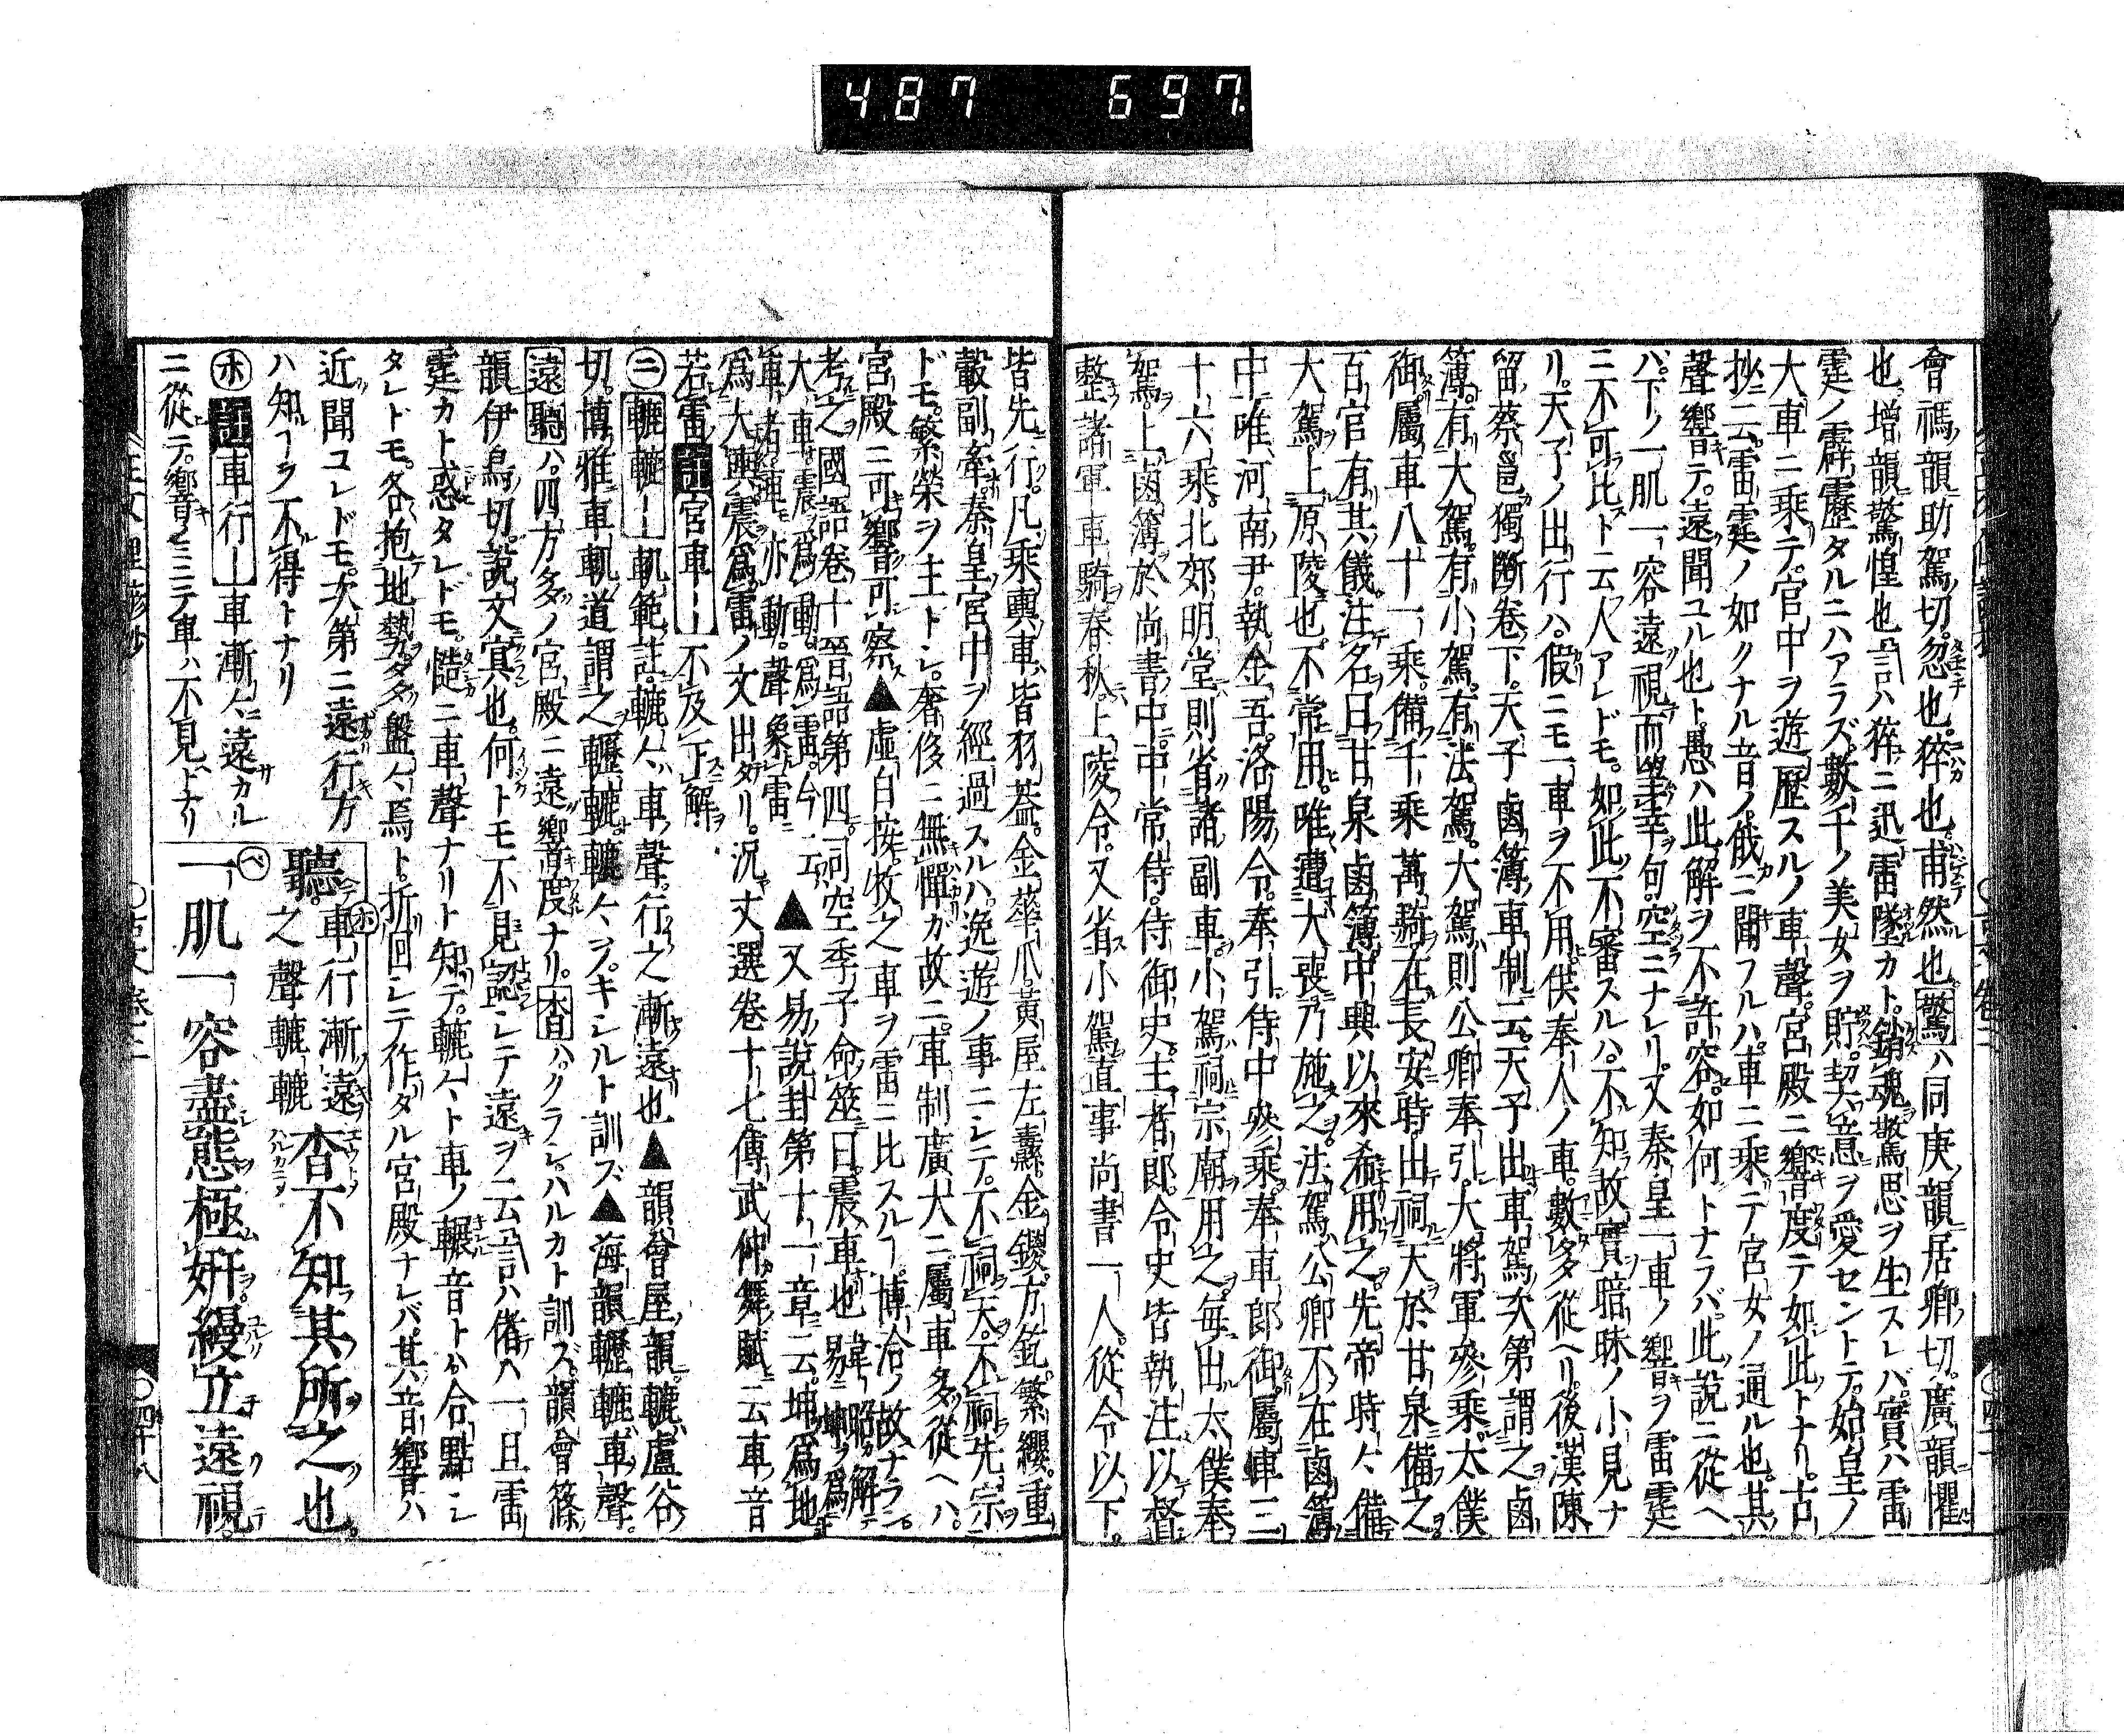 487 697
會禡韻助駕切忽也猝也甫然也驚ハ同庚韻居卿切廣韻懼
也増韻驚惶也言ハ猝ニ迅雷墜カト銷魂驚思ヲ生スレバ實ハ雷
霆ノ霹靂タルニハアラズ數千ノ美女ヲ貯契意ヲ愛セントテ始皇ノ
大車ニ乘テ宮中ヲ遊歷スルノ車聲宮殿ニ響度テ如此トナリ古
抄ニ云雷霆ノ如クナル音ノ俄ニ聞フルハ車ニ乘テ宮女ノ通ル也其
聲響テ遠聞ユル也ト愚ハ此解ヲ不許容如何トナラバ此說ニ從ヘ
バ下ノ一肌一容遠視而望幸句空ニナレリ又秦皇一車ノ響ヲ雷霆
ニ不可比ト云人アレドモ如此不審スルハ不知故實暗昧ノ小見ナ
リ天子ノ出行ハ假ニモ一車ヲ不用供奉人ノ車數多從ヘリ後漢陳
留蔡邕獨斷卷下天子鹵簿車制云天子出車駕次第謂之鹵
簿有大駕有小駕有法駕大駕則公卿奉引大將軍參乘太僕
御屬車八十一乘備千乘萬騎在長安時出祠天於甘泉備之
百官有其儀注名曰甘泉鹵簿中興以來希用之先帝時々備
大駕上原陵也不常用唯遭大喪乃施之法駕公卿不在鹵簿
中唯河南尹執金吾洛陽令奉引侍中參乘奉車郎御屬車三
十六乘北郊明堂則省諸副車小駕祠宗廟用之每出太僕奉
駕上鹵簿於尚書中中常侍侍御史主者郎令史皆執注以督
整諸軍車騎春秋上陵令又省小駕直事尚書一人從令以下
皆先行凡乘輿車皆羽蓋金華爪黃屋左纛金鍐方釳繁纓重
轂副牽秦皇宮中ヲ經過スルハ逸遊ノ事ニシテ不祠天不祠先宗
ドモ繁榮ヲ主トシ奢侈ニ無憚カ故ニ車制廣大ニ屬車多從ヘハ
宮殿ニ可響可察▲虛白按牧之車ヲ雷ニ比スルヿ博洽ノ故ナラン
考之國語卷十晉語第四司空季子命筮曰震車也韋昭解易ニ坤ヲ爲
大車震ヲ爲動爲雷今云車諸車モ亦動聲象雷ニ▲又易說卦第十一章云坤爲地
爲大輿震爲雷ノ文出タリ況文選卷十七傅武仲舞賦ニ云車音
若雷註宮車――不及了解
㊁轆轆――軌範註轆々車聲行之漸遠也▲韻會屋韻轆盧谷
切博雅車軌道謂之轣轆轆々ヲキシルト訓ズ▲海韻轣轆車聲
遠聽ハ四方多ノ宮殿ニ遠響度ナリ杳ハクラシハルカト訓ズ韻會篠
韻伊鳥切說文冥也何トモ不見認シテ遠ヲ云言ハ偖ヘ一旦雷
霆カト惑タレドモ慥ニ車聲ナリト知テ轆々ト車ノ輾音トハ合點シ
タレドモ各抱地勢タヽ盤々焉ト折回シテ作タル宮殿ナレバ其音響ハ
近聞コレドモ次第ニ遠行方
ハ知ヿヲ不得トナリ
㋭註車行―車漸々ニ遠カル
ニ從テ響ノミニテ車ハ不見トナリ
聽㋭車行漸遠之聲轆轆杳不知其所之也
㋬一肌一容盡態極妍縵立遠視